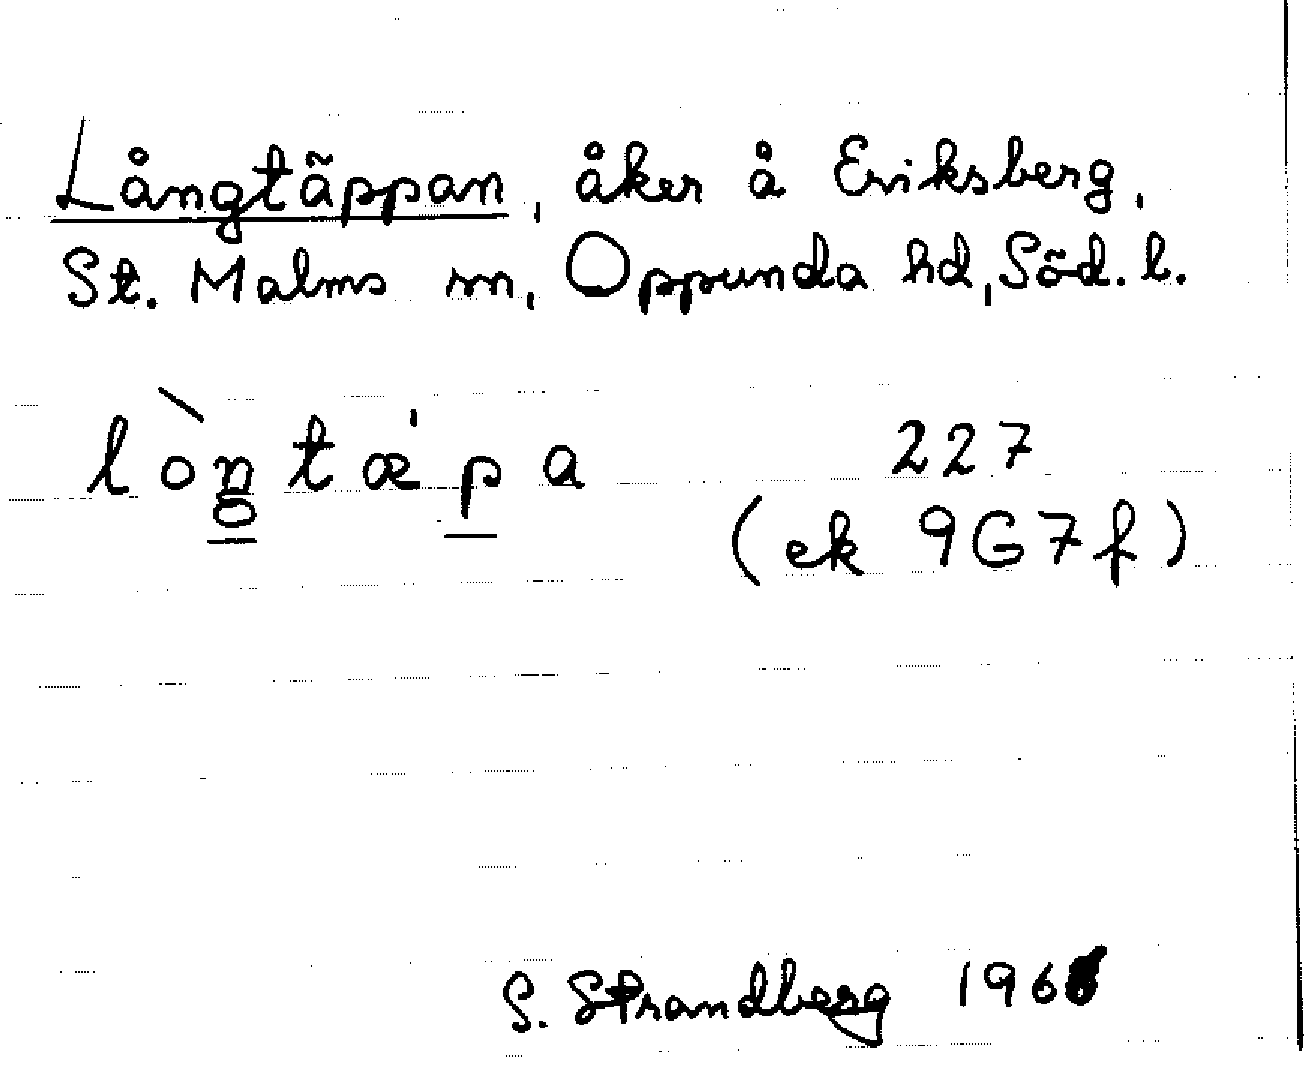 Långtäppan, åker å Eriksberg,
St. Malms sn, Oppunda hd, Söd. l.
lòn̥tæ'pa 227
(ek 9G7f)
S. Strandberg 1966